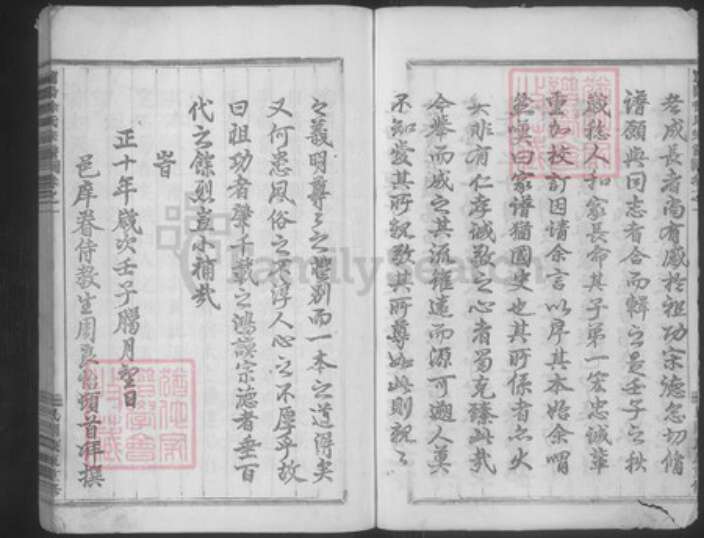 老成長者尚有感於祖功宗德急切脩
譜願與同志者合而輯之是壬子之秋
歲稔人和家長命其子弟一宏忠誠輩
重加校訂因請余言以序其本始余喟
然嘆曰家譜猶國史也其所係者亦大
夫非有仁孝誠敬之心者曷克臻此哉
今舉而成之其流雖遠而源可遡人莫
不知愛其所親敬其所尊如此則親々
之義明尊々之禮別而一本之道得矣
又何患風俗之不淳人心之不厚乎故
曰祖功者肇千載之鴻謨宗德者垂百
代之餘烈豈小補哉
旹
正十年歲次壬子臘月望日
邑庠眷侍教生周 頓首拜撰
FamilySearch